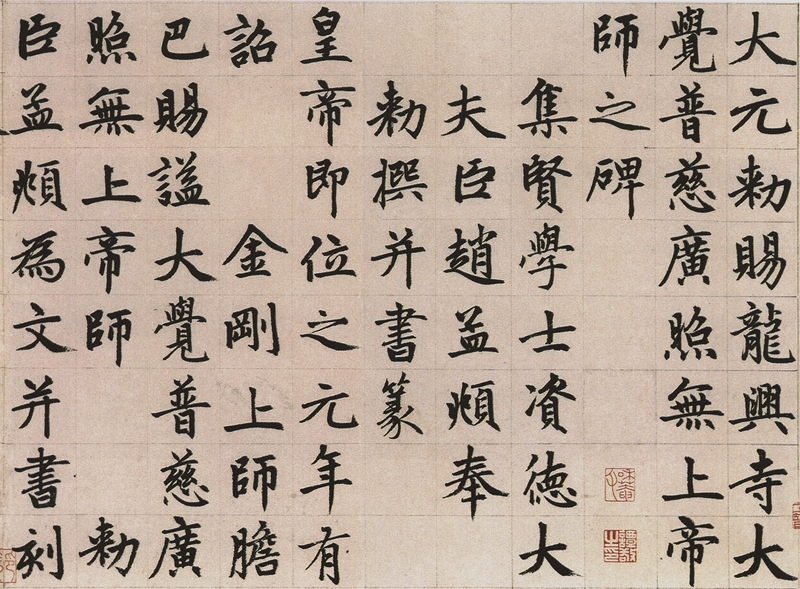 大元勑賜龍興寺大
覺普慈廣照無上帝
師之碑
集賢學士資德大
夫臣趙孟頫奉
勑撰并書篆
皇帝即位之元年有
詔金剛上師膽
巴賜謚大覺普慈廣
照無上帝師勑
臣孟頫為文并書刻